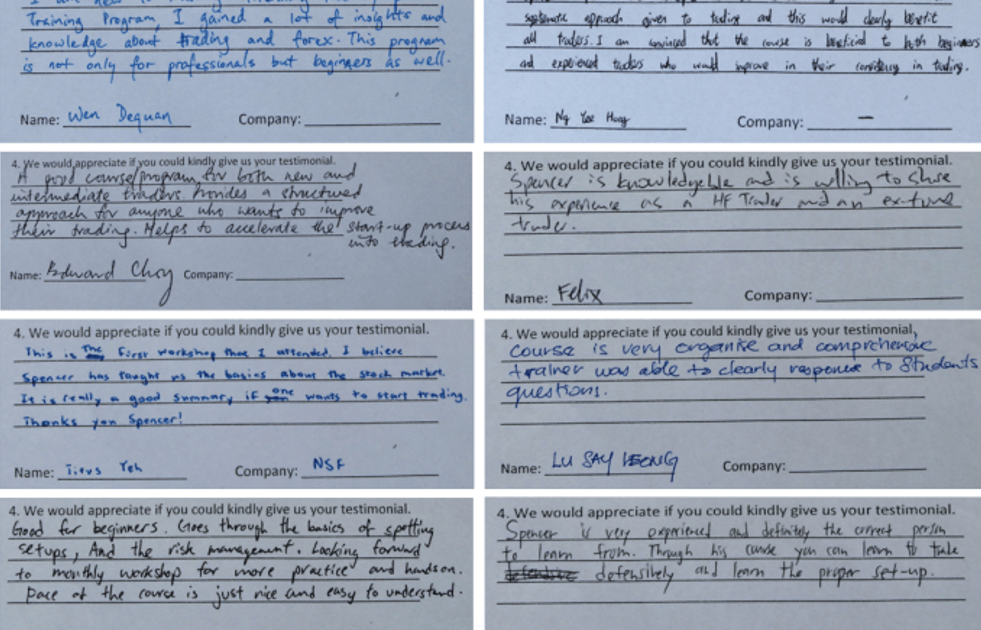 Training Program, I gained a lot of insights and
knowledge about trading and forex. This program
is not only for professionals but beginners as well.
Name: Wen Dequan Company:
systematic approach given to trading and this would clearly benefit
all traders. I am convinced that the course is beneficial to both beginners
and experienced traders who would improve in their consistency in trading.
Name: Ng Yee Company: —
4. We would appreciate if you could kindly give us your testimonial.
A good course/program for both new and
intermediate traders. Provides a structured
approach for anyone who wants to improve
their trading. Helps to accelerate the start-up process
into trading.
Name: Edward Choy Company:
4. We would appreciate if you could kindly give us your testimonial.
Spencer is knowledgeable and is willing to share
his experience as a HF Trader and an ex-fund
trader.
Name: Felix Company:
4. We would appreciate if you could kindly give us your testimonial.
This is The First workshop that I attended. I believe
Spencer has taught us the basics about the stock market.
It is really a good Summary if one wants to start trading.
Thanks you Spencer!
Name: Titus Yeh Company: NSF
4. We would appreciate if you could kindly give us your testimonial,
course is very organise and comprehensive
trainer was able to clearly response to students
questions.
Name: LU SAY Company:
4. We would appreciate if you could kindly give us your testimonial.
Good for beginners. Goes through the basics of spotting
setups, And the risk management. Looking forward
to monthly workshop for more practice and handson.
Pace of the course is just nice and easy to understand.
4. We would appreciate if you could kindly give us your testimonial.
Spencer is very experienced and definitely the correct person
to learn from. Through his course you can learn to take
defensively and learn the proper set-up.